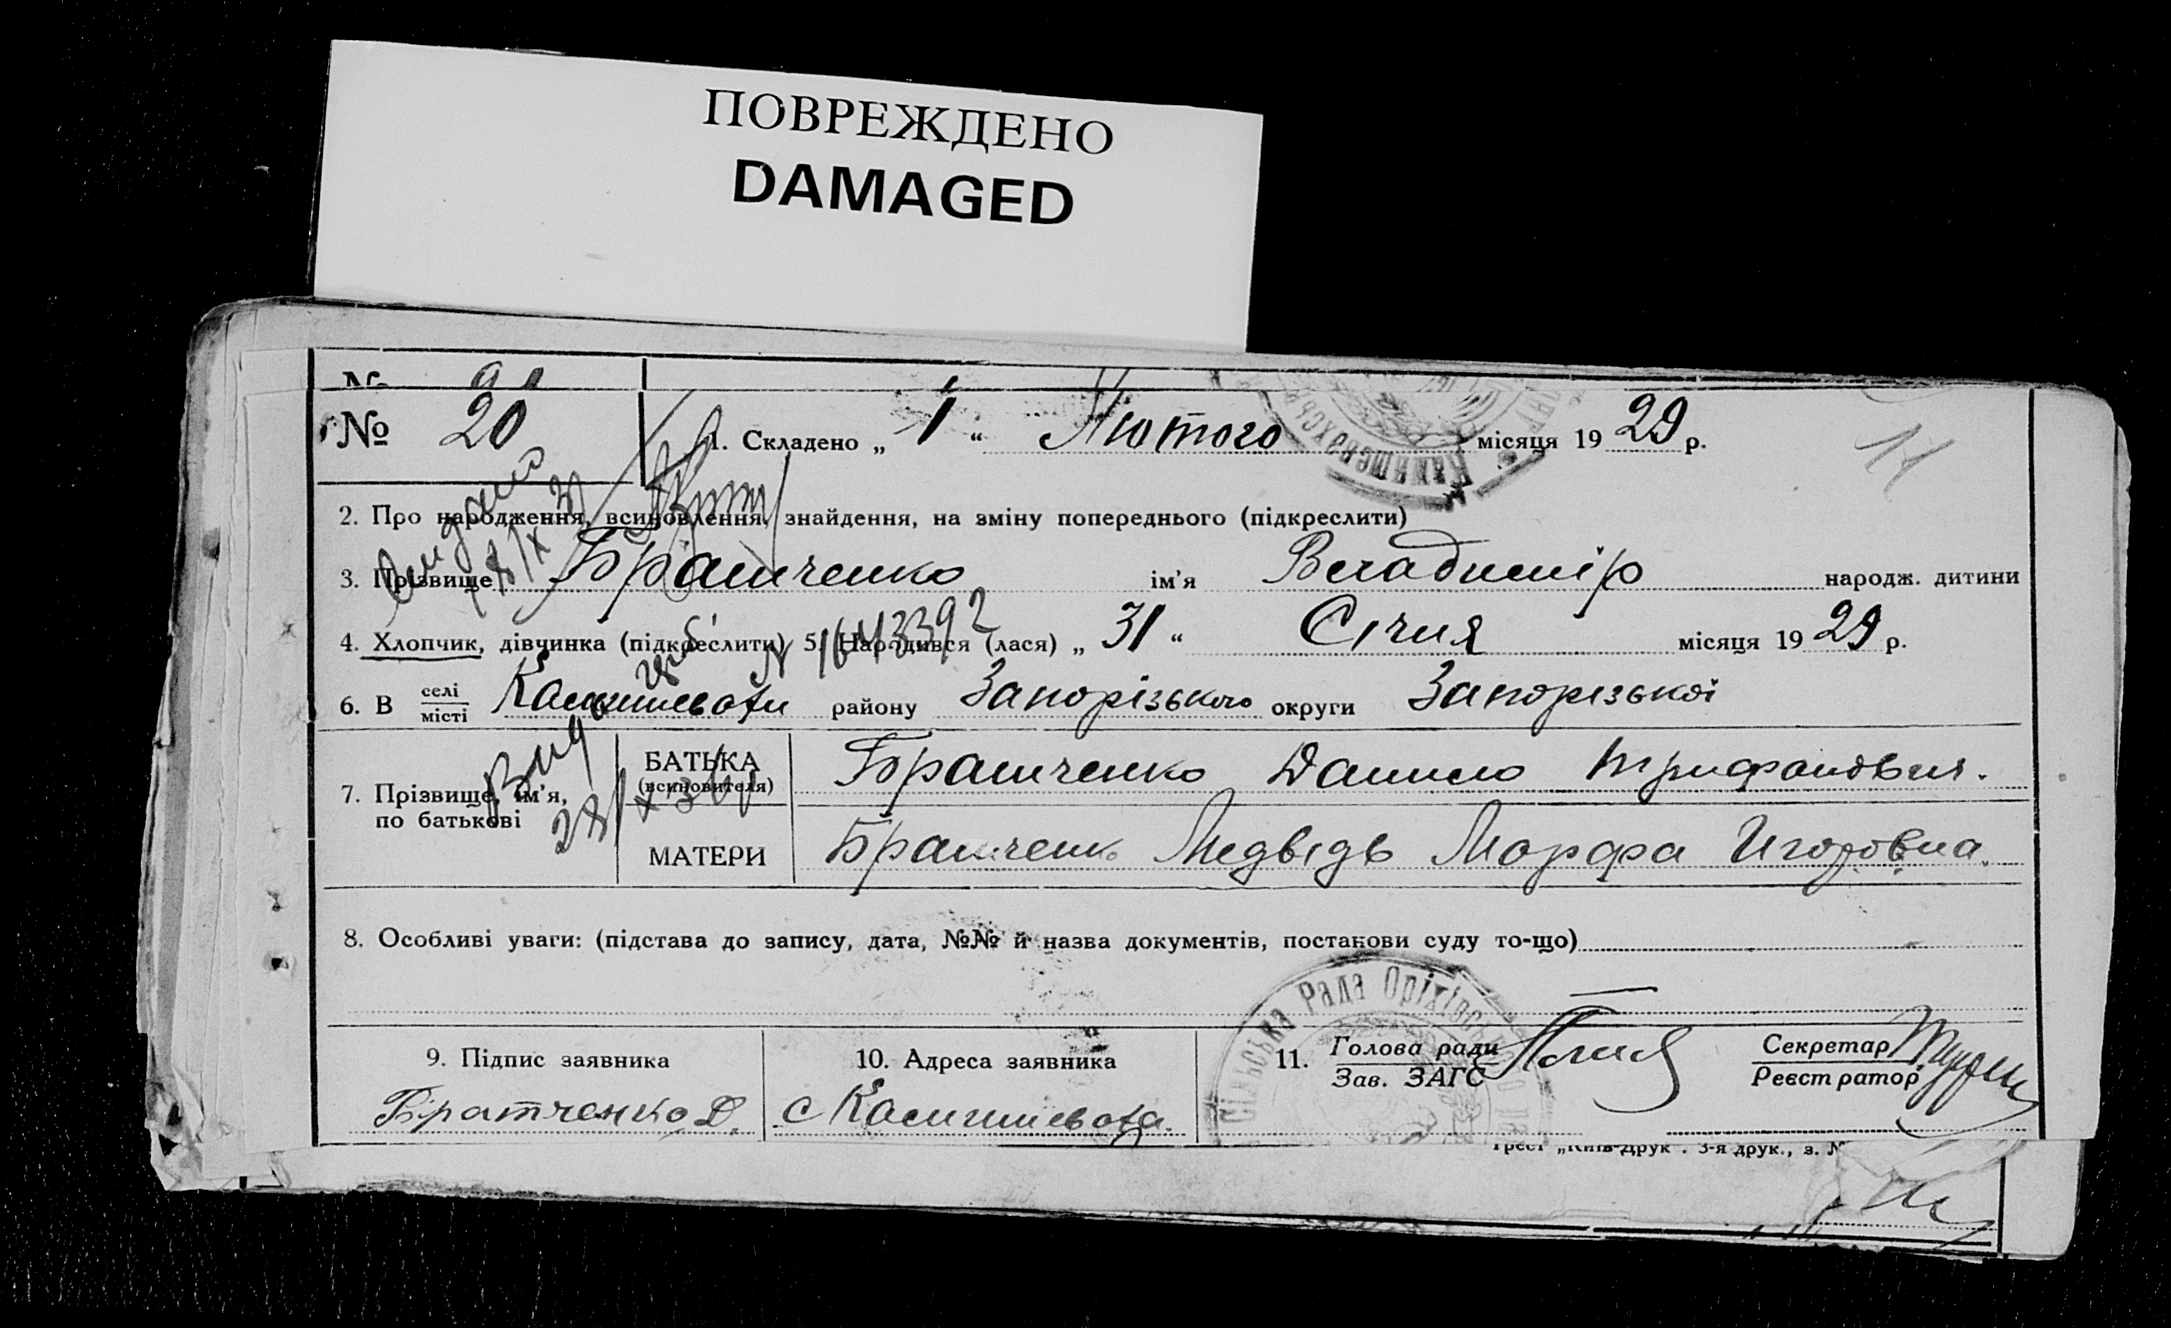 ПОВРЕЖДЕНО
DAMAGED
№ 20
1. Складено „ 1 “ Лютого місяця 19 29 р.
11
2. Про народження, всиновлення, знайдення, на зміну попереднього (підкреслити)
3. Прізвище Братченко ім’я Владимір народж. дитини
4. Хлопчик, дівчинка (підкреслити) 5. Народився (лася) „ 31 “ Січня місяця 19 29 р.
N 1643392
6. В селі місті Камишевати району Запорізького округи Запорізької
7. Прізвище, ім’я, по батькові
БАТЬКА (всиновителя) Братченко Данило Трифанович.
МАТЕРИ Братченк Медвідь Марфа Игоровна.
8. Особливі уваги: (підстава до запису, дата, №№ й назва документів, постанови суду то-що)
Сільська Рада Оріхівсь
9. Підпис заявника
Братченко Д.
10. Адреса заявника
с Камишевата
11. Голова ради
Зав. ЗАГС
Секретар
Реєстратор
Трест „Київ-Друк“. 3-я друк., з. №